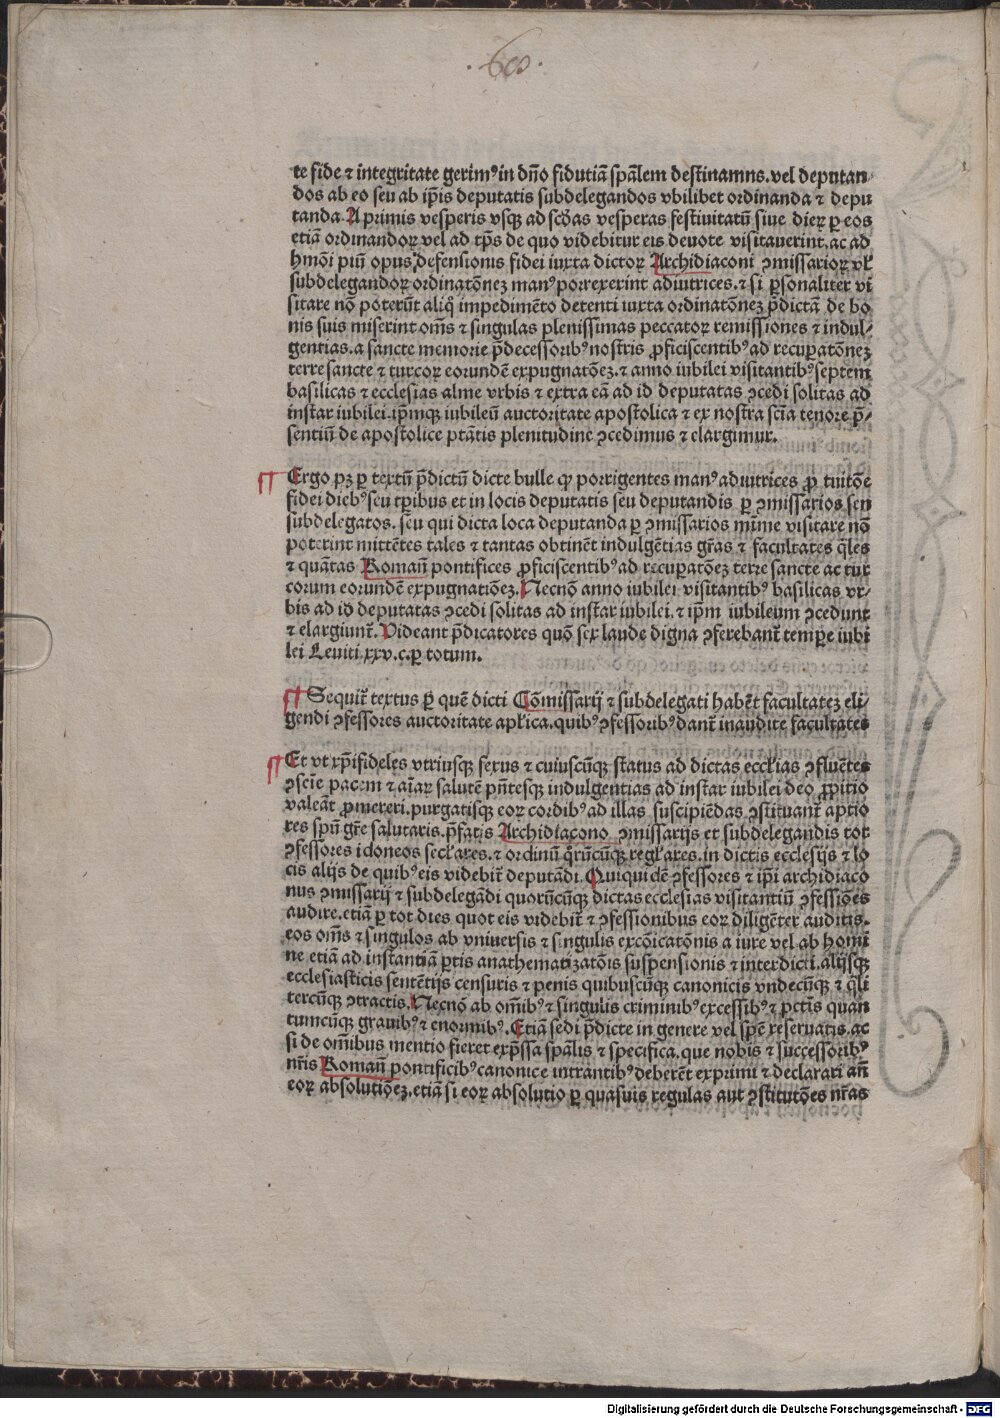 .60.
te fide ⁊ integritate gerimꝰ in dño fidutiā spālem destinamns. vel deputan
dos ab eo seu ab ip̄is deputatis subdelegandos vbilibet ordinanda ⁊ depu
tanda. A primis vesperis vsqꝫ ad scd̄as vesperas festiuitatū siue dieꝝ ꝑ eos
etiā ordinandoꝝ vel ad tp̄s de quo videbitur eis deuote visitauerint. ac ad
hmōi piū opus defensionis fidei iuxta dictoꝝ Archidiaconi ꝯmissarioꝝ vł
subdelegandoꝝ ordinatōneꝫ manꝰ porrexerint adiutrices. ⁊ si ꝑsonaliter vi
sitare nō poterūt aliq̊ impedimēto detenti iuxta ordinatōneꝫ p̄dictā de bo
nis suis miserint om̄s ⁊ singulas plenissimas peccatoꝝ remissiones ⁊ indul/
gentias. a sancte memorie p̄decessoribꝰ nostris ꝓficiscentibꝰ ad recuꝑatōneꝫ
terre sancte ⁊ turcoꝝ eorundē expugnatōeꝫ. ⁊ anno iubilei visitantibꝰ septem
basilicas ⁊ ecclesias alme vrbis ⁊ extra eā ad id deputatas ꝯcedi solitas ad
instar iubilei. ip̄mqꝫ iubileū auctoritate apostolica ⁊ ex nostra sciā tenore p̄/
sentiū de apostolice ptātis plenitudine ꝯcedimus ⁊ elargimur.
¶ Ergo pꝫ ꝑ textū p̄dictū dicte bulle ꝙ porrigentes manꝰ adiutrices ꝓ tuitōe
fidei diebꝰ seu tꝑibus et in locis deputatis seu deputandis ꝑ ꝯmissarios seu
subdelegatos. seu qui dicta loca deputanda ꝑ ꝯmissarios mīme visitare nō
poterint mittētes tales ⁊ tantas obtinēt indulgētias gr̄as ⁊ facultates q̄les
⁊ quātas Romañ pontifices ꝓficiscentibꝰ ad recuꝑatōeꝫ terre sancte ac tur
corum eorundē expugnatiōeꝫ. Necnō anno iubilei visitantibꝰ basilicas vr/
bis ad id deputatas ꝯcedi solitas ad instar iubilei. ⁊ ip̄m iubileum ꝯcedunt
⁊ elargiunt̄. Videant p̄dicatores quō sex laude digna ꝯferebant̄ temꝑe iubi
lei Leuiti xxv. c. ꝑ totum.
¶ Sequit̄ textus ꝑ quē dicti Cōmissarij ⁊ subdelegati habēt facultateꝫ eli/
gendi ꝯfessores auctoritate apłica. quibꝰ ꝯfessoribꝰ dant̄ inaudite facultates
¶ Et vt xp̄ifideles vtriusqꝫ sexus ⁊ cuiuscūqꝫ status ad dictas eccłias ꝯfluētes
ꝯscīe pacem ⁊ aīaꝝ salutē pn̄tesqꝫ indulgentias ad instar iubilei deo ꝓpitio
valeāt ꝓmereri. purgatisqꝫ eoꝝ cordibꝰ ad illas suscipiēdas ꝯstituant̄ aptio
res spū gr̄e salutaris. p̄fatis Archidiacono ꝯmissarijs et subdelegandis tot
ꝯfessores idoneos secłares. ⁊ ordinū q̊rūcūqꝫ regłares. in dictis ecclesijs ⁊ lo
cis alijs de quibꝰ eis videbit̄ deputādi. Quiquidē ꝯfessores ⁊ ip̄i archidiaco
nus ꝯmissarij ⁊ subdelegādi quorūcūqꝫ dictas ecclesias visitantiū ꝯfessiōes
audire. etiā ꝑ tot dies quot eis videbit̄ ⁊ ꝯfessionibus eoꝝ diligēter auditis.
eos om̄s ⁊ singulos ab vniuersis ⁊ singulis excōicatōnis a iure vel ab homi
ne etiā ad instantiā ꝑtis anathematizatōis suspensionis ⁊ interdicti. alijsqꝫ
ecclesiasticis sentētijs censuris ⁊ penis quibuscūqꝫ canonicis vndecūqꝫ ⁊ q̄li
tercūqꝫ ꝯtractis. Necnō ab om̄ibꝰ ⁊ singulis criminibꝰ excessibꝰ ⁊ pctīs quan
tumcūqꝫ grauibꝰ ⁊ enormibꝰ. Etiā sedi p̄dicte in genere vel spē reseruatis. ac
si de om̄ibus mentio fieret exp̄ssa spālis ⁊ specifica. que nobis ⁊ successoribꝰ
nr̄is Romañ pontificibꝰ canonice intrantibꝰ deberēt exprimi ⁊ declarari añ
eoꝝ absolutiōeꝫ. etiā si eoꝝ absolutio ꝑ quasuis regulas aut ꝯstitutōes nr̄as
Digitalisierung gefördert durch die Deutsche Forschungsgemeinschaft - DFG